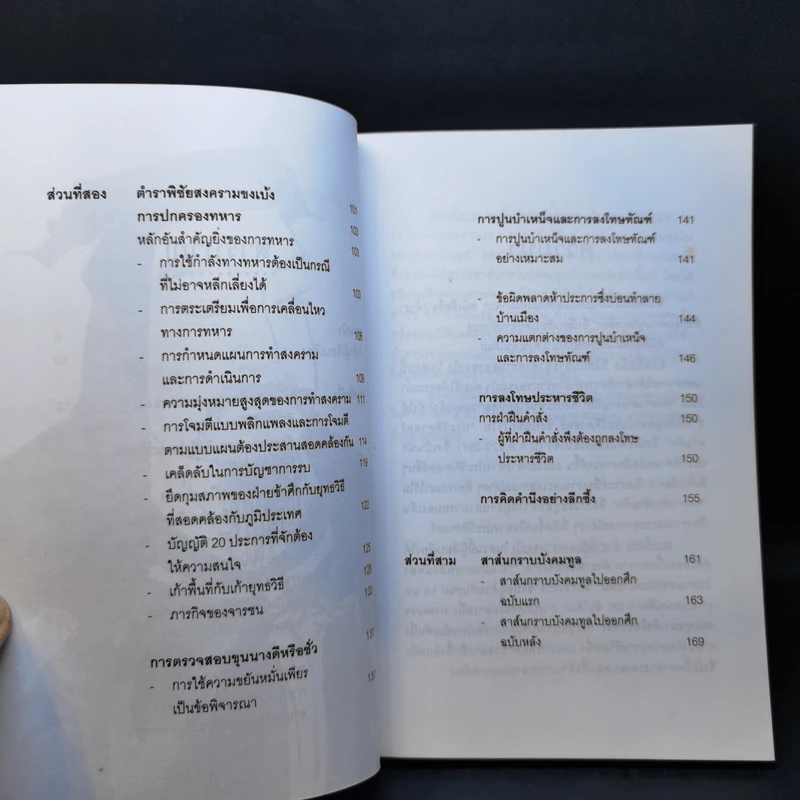 ส่วนที่สอง ตำราพิชัยสงครามขงเบ้ง
การปกครองทหาร 101
หลักอันสำคัญยิ่งของการทหาร 103
- การใช้กำลังทางทหารต้องเป็นกรณี 103
ที่ไม่อาจหลีกเลี่ยงได้ 103
- การตระเตรียมเพื่อการเคลื่อนไหว
ทางการทหาร 106
- การกำหนดแผนการทำสงคราม
และการดำเนินการ 109
- ความมุ่งหมายสูงสุดของการทำสงคราม 111
- การโจมตีแบบพลิกแพลงและการโจมตี
ตามแบบแผนต้องประสานสอดคล้องกัน 114
- เคล็ดลับในการบัญชาการรบ 119
- ยึดกุมสภาพของฝ่ายข้าศึกกับยุทธวิธี
ที่สอดคล้องกับภูมิประเทศ 122
- บัญญัติ 20 ประการที่จักต้อง
ให้ความสนใจ 125
- เก้าพื้นที่กับเก้ายุทธวิธี 128
- ภารกิจของจารชน 133
การตรวจสอบขุนนางดีหรือชั่ว 137
- การใช้ความขยันหมั่นเพียร 137
เป็นข้อพิจารณา
การปูนบำเหน็จและการลงโทษทัณฑ์ 141
- การปูนบำเหน็จและการลงโทษทัณฑ์
อย่างเหมาะสม 141
- ข้อผิดพลาดห้าประการซึ่งบ่อนทำลาย
บ้านเมือง 144
- ความแตกต่างของการปูนบำเหน็จ
และการลงโทษทัณฑ์ 146
การลงโทษประหารชีวิต 150
การฝ่าฝืนคำสั่ง 150
- ผู้ที่ฝ่าฝืนคำสั่งพึงต้องถูกลงโทษ
ประหารชีวิต 150
การคิดคำนึงอย่างลึกซึ้ง 155
ส่วนที่สาม สาส์นกราบบังคมทูล 161
- สาส์นกราบบังคมทูลไปออกศึก
ฉบับแรก 163
- สาส์นกราบบังคมทูลไปออกศึก
ฉบับหลัง 169